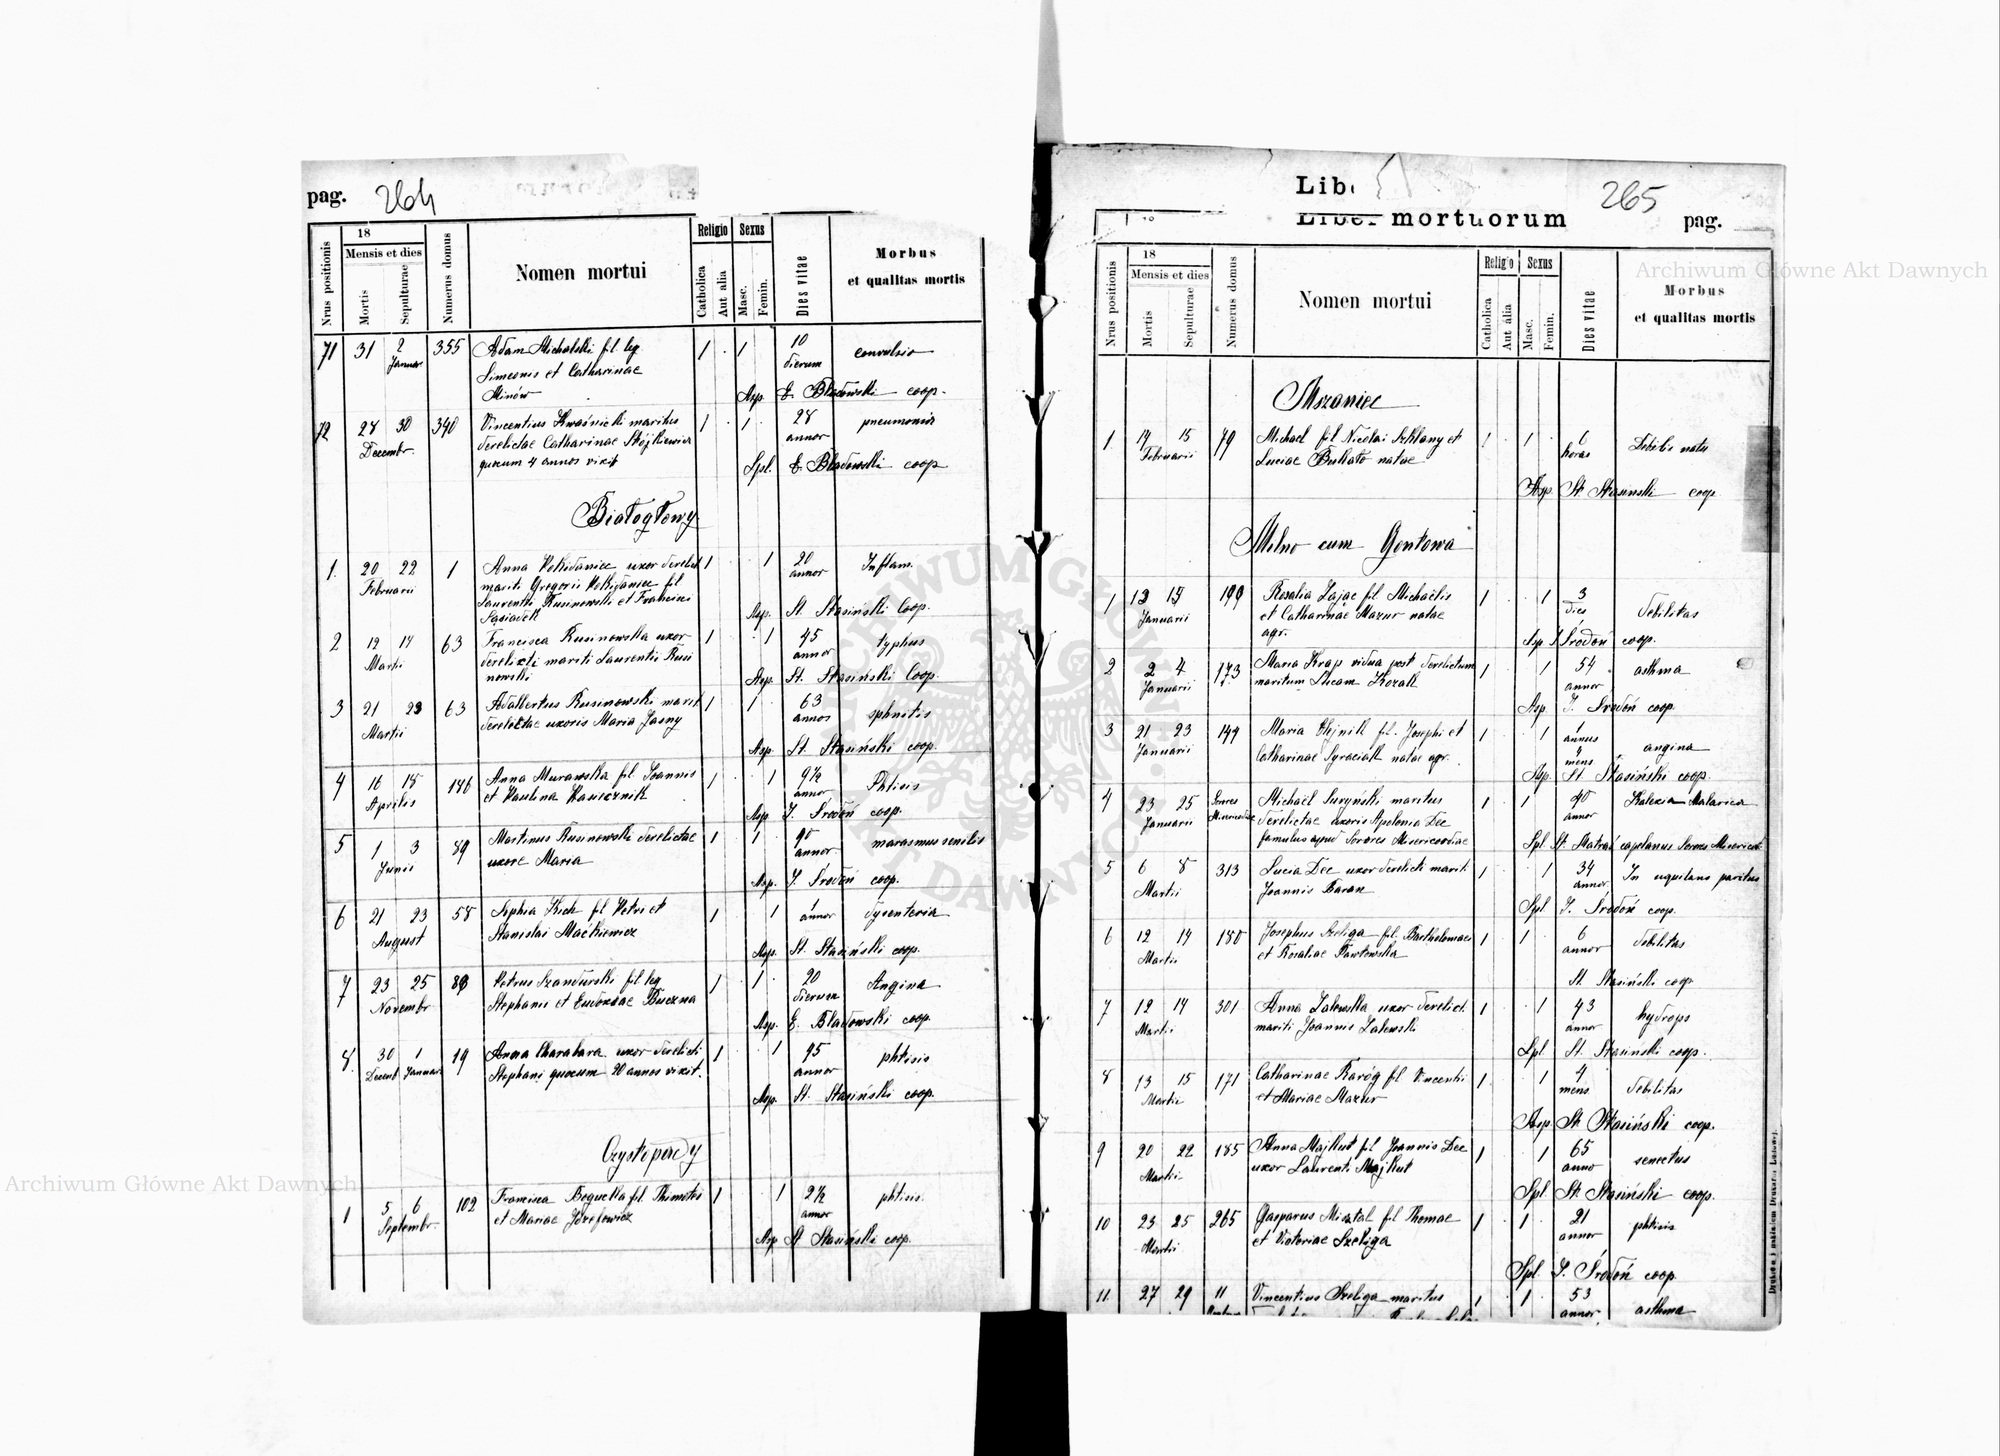 pag. 264
18
Religio
Sexus
Nrus positionis
Mensis et dies
Mortis
Sepulturae
Numerus domus
Nomen mortui
Catholica
Aut alia
Masc.
Femin.
Dies vitae
Morbus
et qualitas mortis
71 31 2 355 Adam Michalski fil leg 1 1 10 convulsio
Januar. Simeonis et Catharinae dierum
Asp. E. Bladowski coop.
72 28 30 340 Vincentius Kwaśnicki maritus 1 1 28 pneumonia
Decembr. derelictae Catharinae annor
quacum 4 annos vixit Spl. E. Bladowski coop
Białogłowy
1. 20 22 1 Anna uxor derelict 1 1 20 Inflam.
Februarii mariti Gregorii fil annor
Laurentii Rusinowski et
Sąsiadek Asp. St. Stasiński Coop.
2 12 14 63 Francisca Rusinowska uxor 1 1 45 typhus
Martii derelicti mariti Laurentii Rusi annor
nowski Asp. St. Stasiński Coop.
3 21 23 63 Adalbertus Rusinowski marit 1 1 63
Martii derelictae uxoris Maria Jasny annos
Asp. St. Stasiński coop.
4 16 18 186 Anna Murawska fil Joannis 1 1 9½ Phtisis
Aprilis et Paulina annor
Asp. J. Środoń coop.
5 1 3 89 Martinus Rusinowski derelictae 1 1 90 marasmus senilis
Junii uxore Maria annor
Asp. J. Środoń coop.
6 21 23 58 Sophia fil Petri et 1 1 1 dysenteria
August Maćkiewicz annor
Asp. St. Stasiński coop.
7 23 25 Petrus Szandurski fil leg 1 1 20 Angina
Novembr Stephani et Eudoxiae dierum
Asp. E. Bladowski coop.
8. 30 1 19 Anna Charabara uxor derelicti 1 1 95 phtisis
Decemb Januar Stephani quocum 20 annos vixit. annor
Asp. St. Stasiński coop.
Czystopady
1 5 6 102 Francisca fil. Thimotei 1 1 2½ phtisis.
Septembr. et Mariae Józefowicz annor
Asp St Stasiński coop.
Liber
265
Liber mortuorum
pag.
18
Religio
Sexus
Nrus positionis
Mensis et dies
Mortis
Sepulturae
Numerus domus
Nomen mortui
Catholica
Aut alia
Masc.
Femin.
Dies vitae
Morbus
et qualitas mortis
Mszaniec
1. 14 15 79 Michael fil Nicolai Szklany et 1 1 6
Februarii Luciae natae horas
Asp. St Stasiński coop
Mslno cum Gontowa
1 13 15 199 Rosalia Zając fil Michaelis 1 1 3 debilitas
Januarii et Catharinae Mazur natae dies
agr. Asp J Środoń coop.
2 2 4 173 Maria Krap vidua post derelictum 1 1 54 asthma
Januarii maritum Lucam Kozak annor
Asp. J. Środoń coop.
3 21 23 144 Maria Olejnik fil. Josephi et 1 1 1 angina
Januarii Catharinae natae agr. annus
mens
Asp. St Stasiński coop.
4 23 25 Sorores Michael Suryński maritus 1 1 40 Malarica
Januarii Misericordiae derelictae uxoris Apolonia Dec annor
famulus apud Sorores Misericordiae Spl St. capelanus Soror Misericord
5 6 8 313 Lucia Dec uxor derelicti marit 1 1 34
Martii Joannis Baran annor.
Spl J. Środoń coop.
6 12 14 180 Josephus Szeliga fil. Bartholomaei 1 1 6 debilitas
Martii et Rosaliae Pawłowska annor
St. Stasiński coop
7 12 14 301 Anna Zalewska uxor derelict. 1 1 43 hydrops
Martii mariti Joannis Zalewski annor
Spl St. Stasinski coop.
8 13 15 171 Catharinae Raróg fil Vincenti 1 1 4 debilitas
Martii et Mariae Mazur mens.
Asp St. Stasiński coop.
9 20 22 185 Anna Majkut fil Joannis Dec 1 1 65 senectus
Martii uxor Laurenti Majkut anno
Spl St. Stasiński coop.
10 23 25 265 Gasparus Misztal fil Thomae 1 1 21 phtisis
Martii et Victoriae Szeliga annor
Spl. J. Środoń coop
11. 27 29 11 Vincentius Szeliga maritus 1 1 53 asthma
annor.
Archiwum Główne Akt Dawnych
Archiwum Główne Akt Dawnych
ARCHIWUM GŁÓWNE AKT DAWNYCH